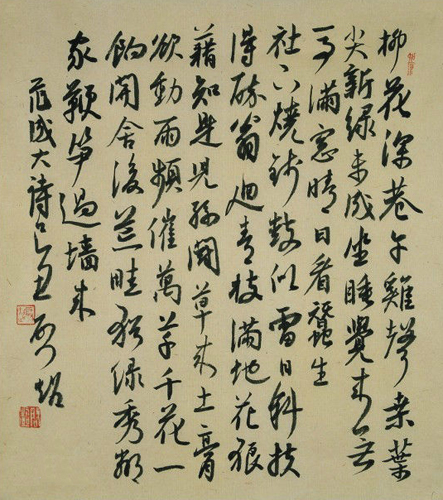 柳花深巷午雞聲桑葉
尖新綠未成坐睡覺來无一
事滿窓晴日看蠶生
社下燒錢鼓似雷日斜扶
得醉翁迴青枝滿地花狼
藉知是兒孫鬪草來土膏
欲動雨頻催萬草千花一
餉開舍後荒畦猶綠秀鄰
家鞭筍過墻來
范成大詩